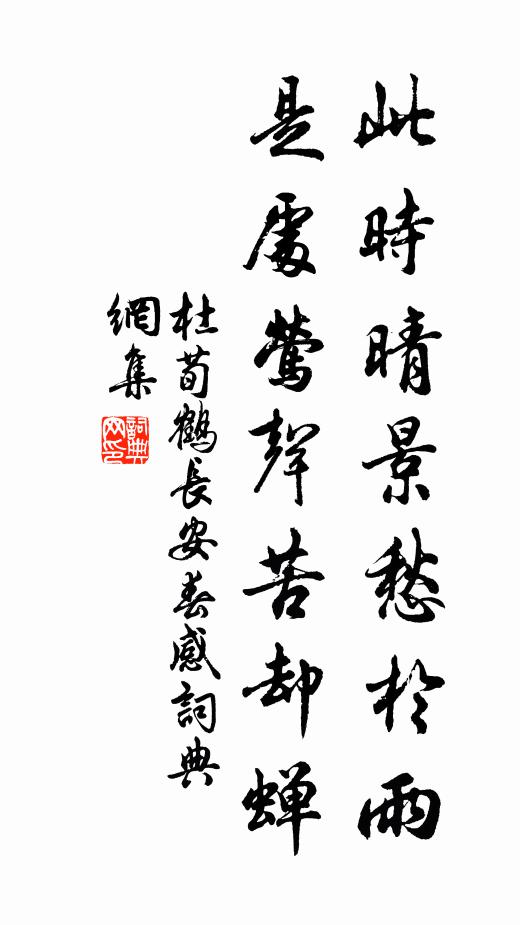 此時晴景愁於雨
是處鶯聲苦却蟬
杜荀鶴長安春感詞典
網集
詞典網印